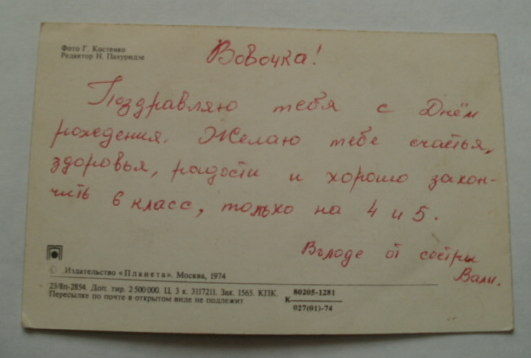 Фото Г. Костенко
Редактор Н. Пахуридзе
Вовочка!
Поздравляю тебя с Днём
рождения. Желаю тебе счастья,
здоровья, радости и хорошо закон-
чить 6 класс, только на 4 и 5.
Володе от сестры
Вали.
© Издательство «Планета». Москва, 1974
23/Вп-2854. Доп. тир. 2 500 000. Ц. 3 к. Зак. 1565. КПК.
Пересылке по почте в открытом виде не подлежит
80205-1281
К
027(01)-74